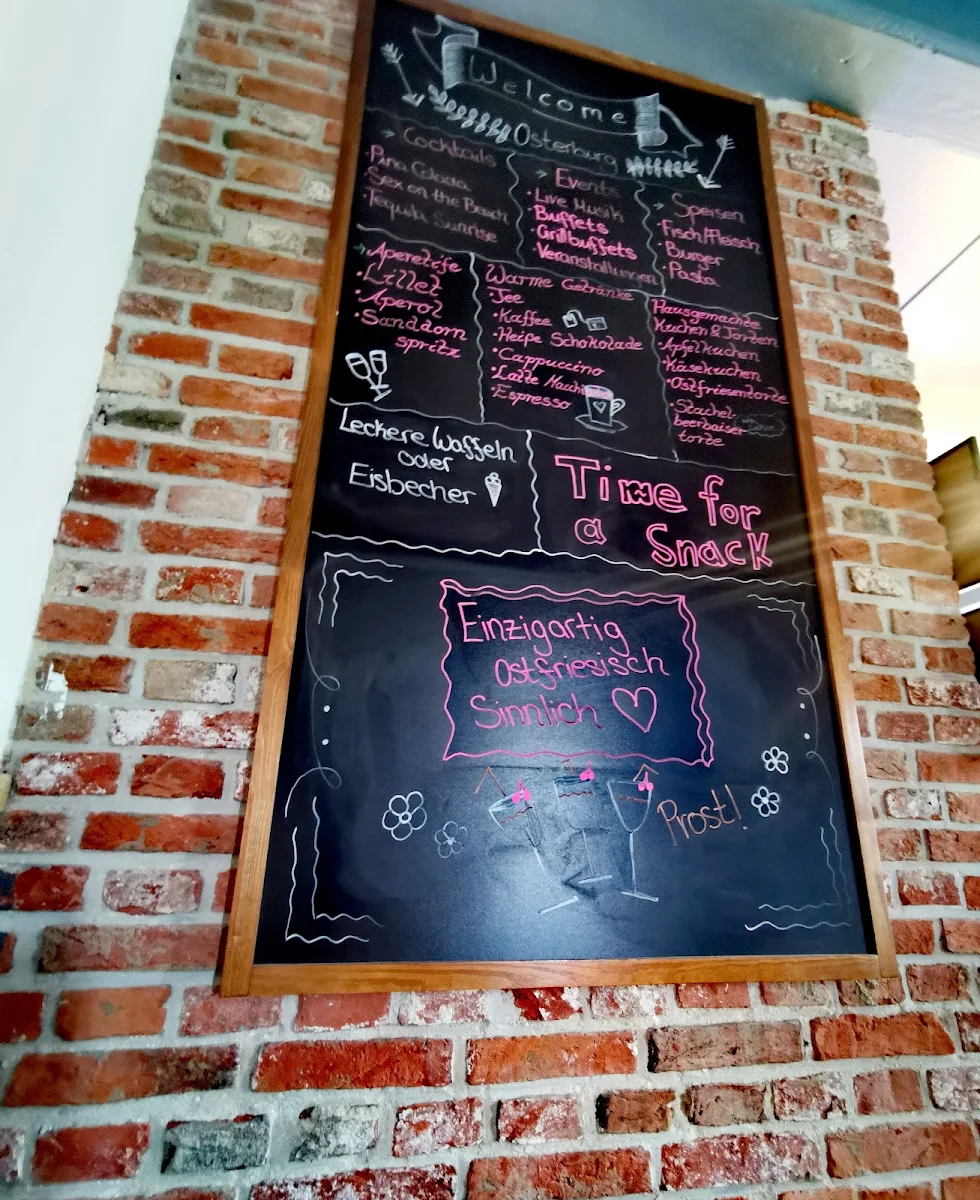 Welcome
Osterburg
Cocktails
Pina Colada
Sex on the Beach
Tequila Sunrise
Events
Live Musik
Buffets
Grillbuffets
Veranstaltungen
Speisen
Fisch/Fleisch
Burger
Pasta
Aperetife
Lillet
Aperol
Sanddorn
spritz
Warme Getränke
Tee
Kaffee
Heiße Schokolade
Cappuccino
Latte Macchi
Espresso
Hausgemachte
Kuchen & Torten
Apfelkuchen
Käsekuchen
Ostfriesentorte
Stachel-
beerbaiser-
torte
Leckere Waffeln
oder
Eisbecher
Time for
a Snack
Einzigartig
Ostfriesisch
Sinnlich
Prost!